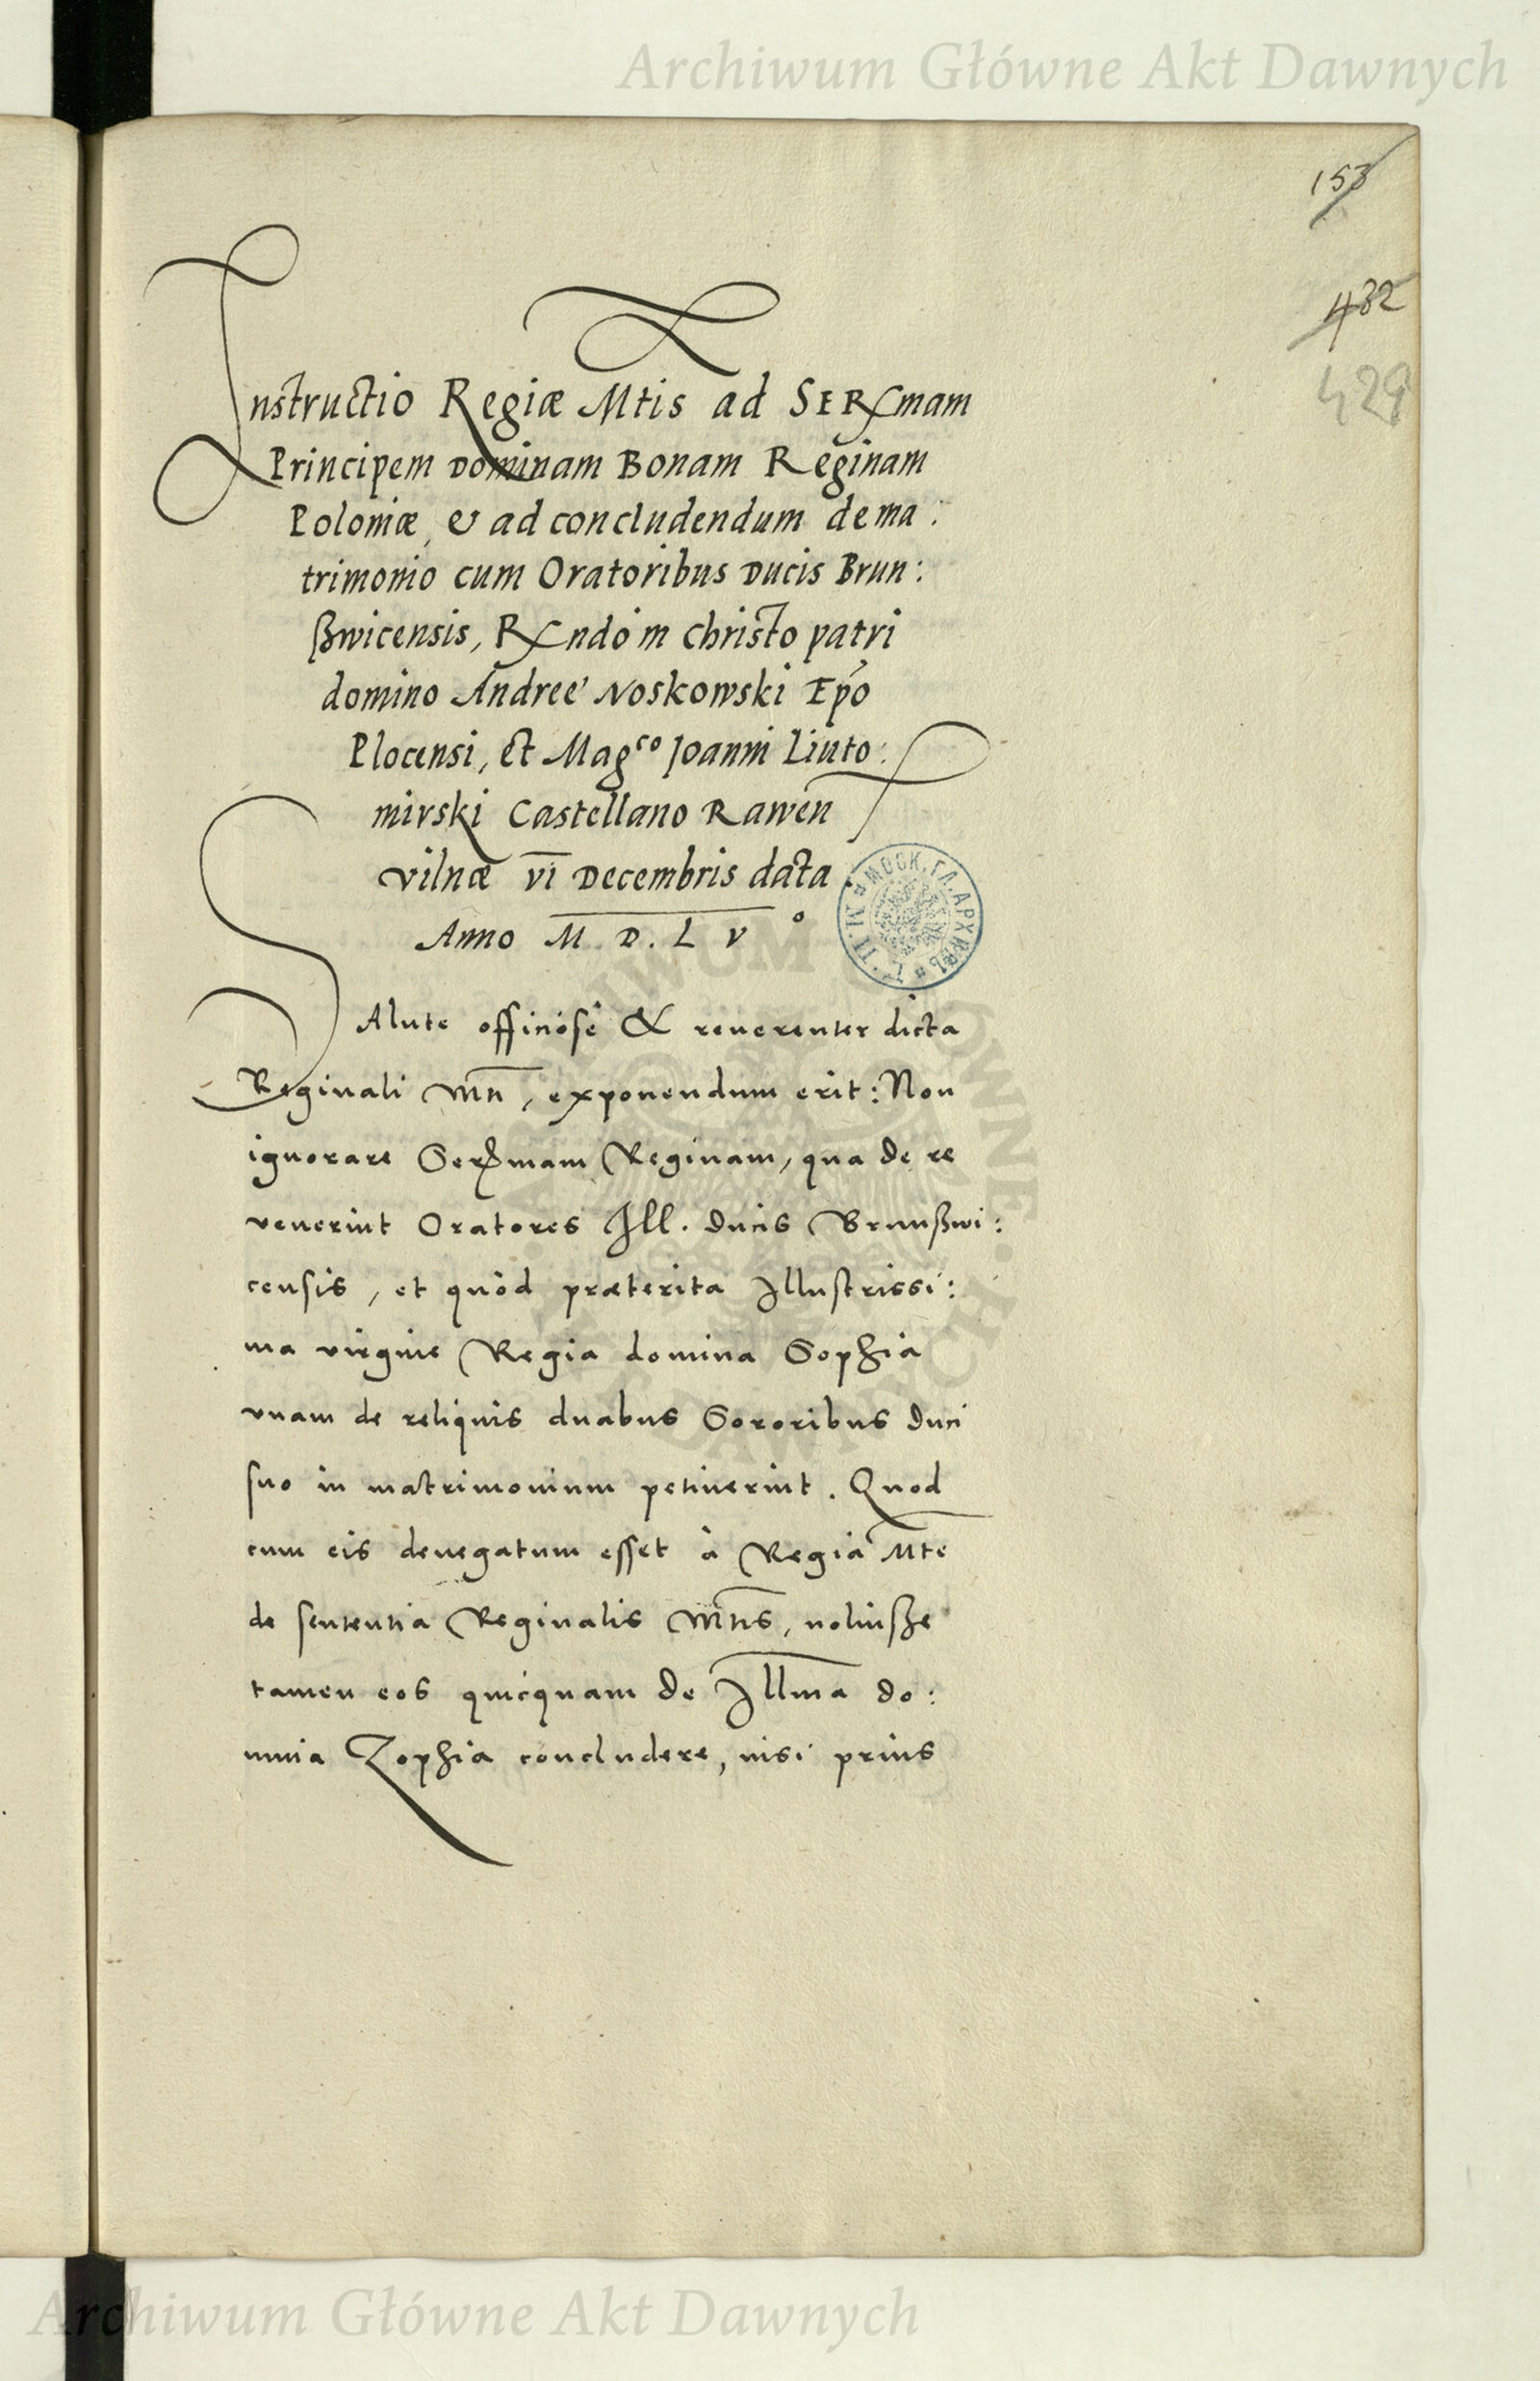 Archiwum Główne Akt Dawnych
153
432
429
Instructio Regiæ Mtis ad SERmam
Principem Dominam Bonam Reginam
Poloniæ, & ad concludendum de ma:
trimonio cum Oratoribus Ducis Brun:
ßwicensis, Rndo in Christo patri
domino Andree Noskowski Epo
Plocensi, et Magco Joanni Liuto:
mirski Castellano Rawen
Vilnæ VI Decembris data
Anno M. D. L V o
SAlute officiosè & reuerenter dicta
Reginali Mti, exponendum erit: Non
ignorare Sermam Reginam, qua de re
venerint Oratores Ill. Ducis Brunßwi:
censis, et quòd præterita Illustrissi:
ma virgine Regia domina Sophia
vnam de reliquis duabus Sororibus Duci
suo in matrimonium petiuerint. Quod
cum eis denegatum esset à Regia Mte
de sententia Reginalis Mtis, noluisße
tamen eos quicquam de Illma do:
minia Zophia concludere, nisi prius
Archiwum Główne Akt Dawnych